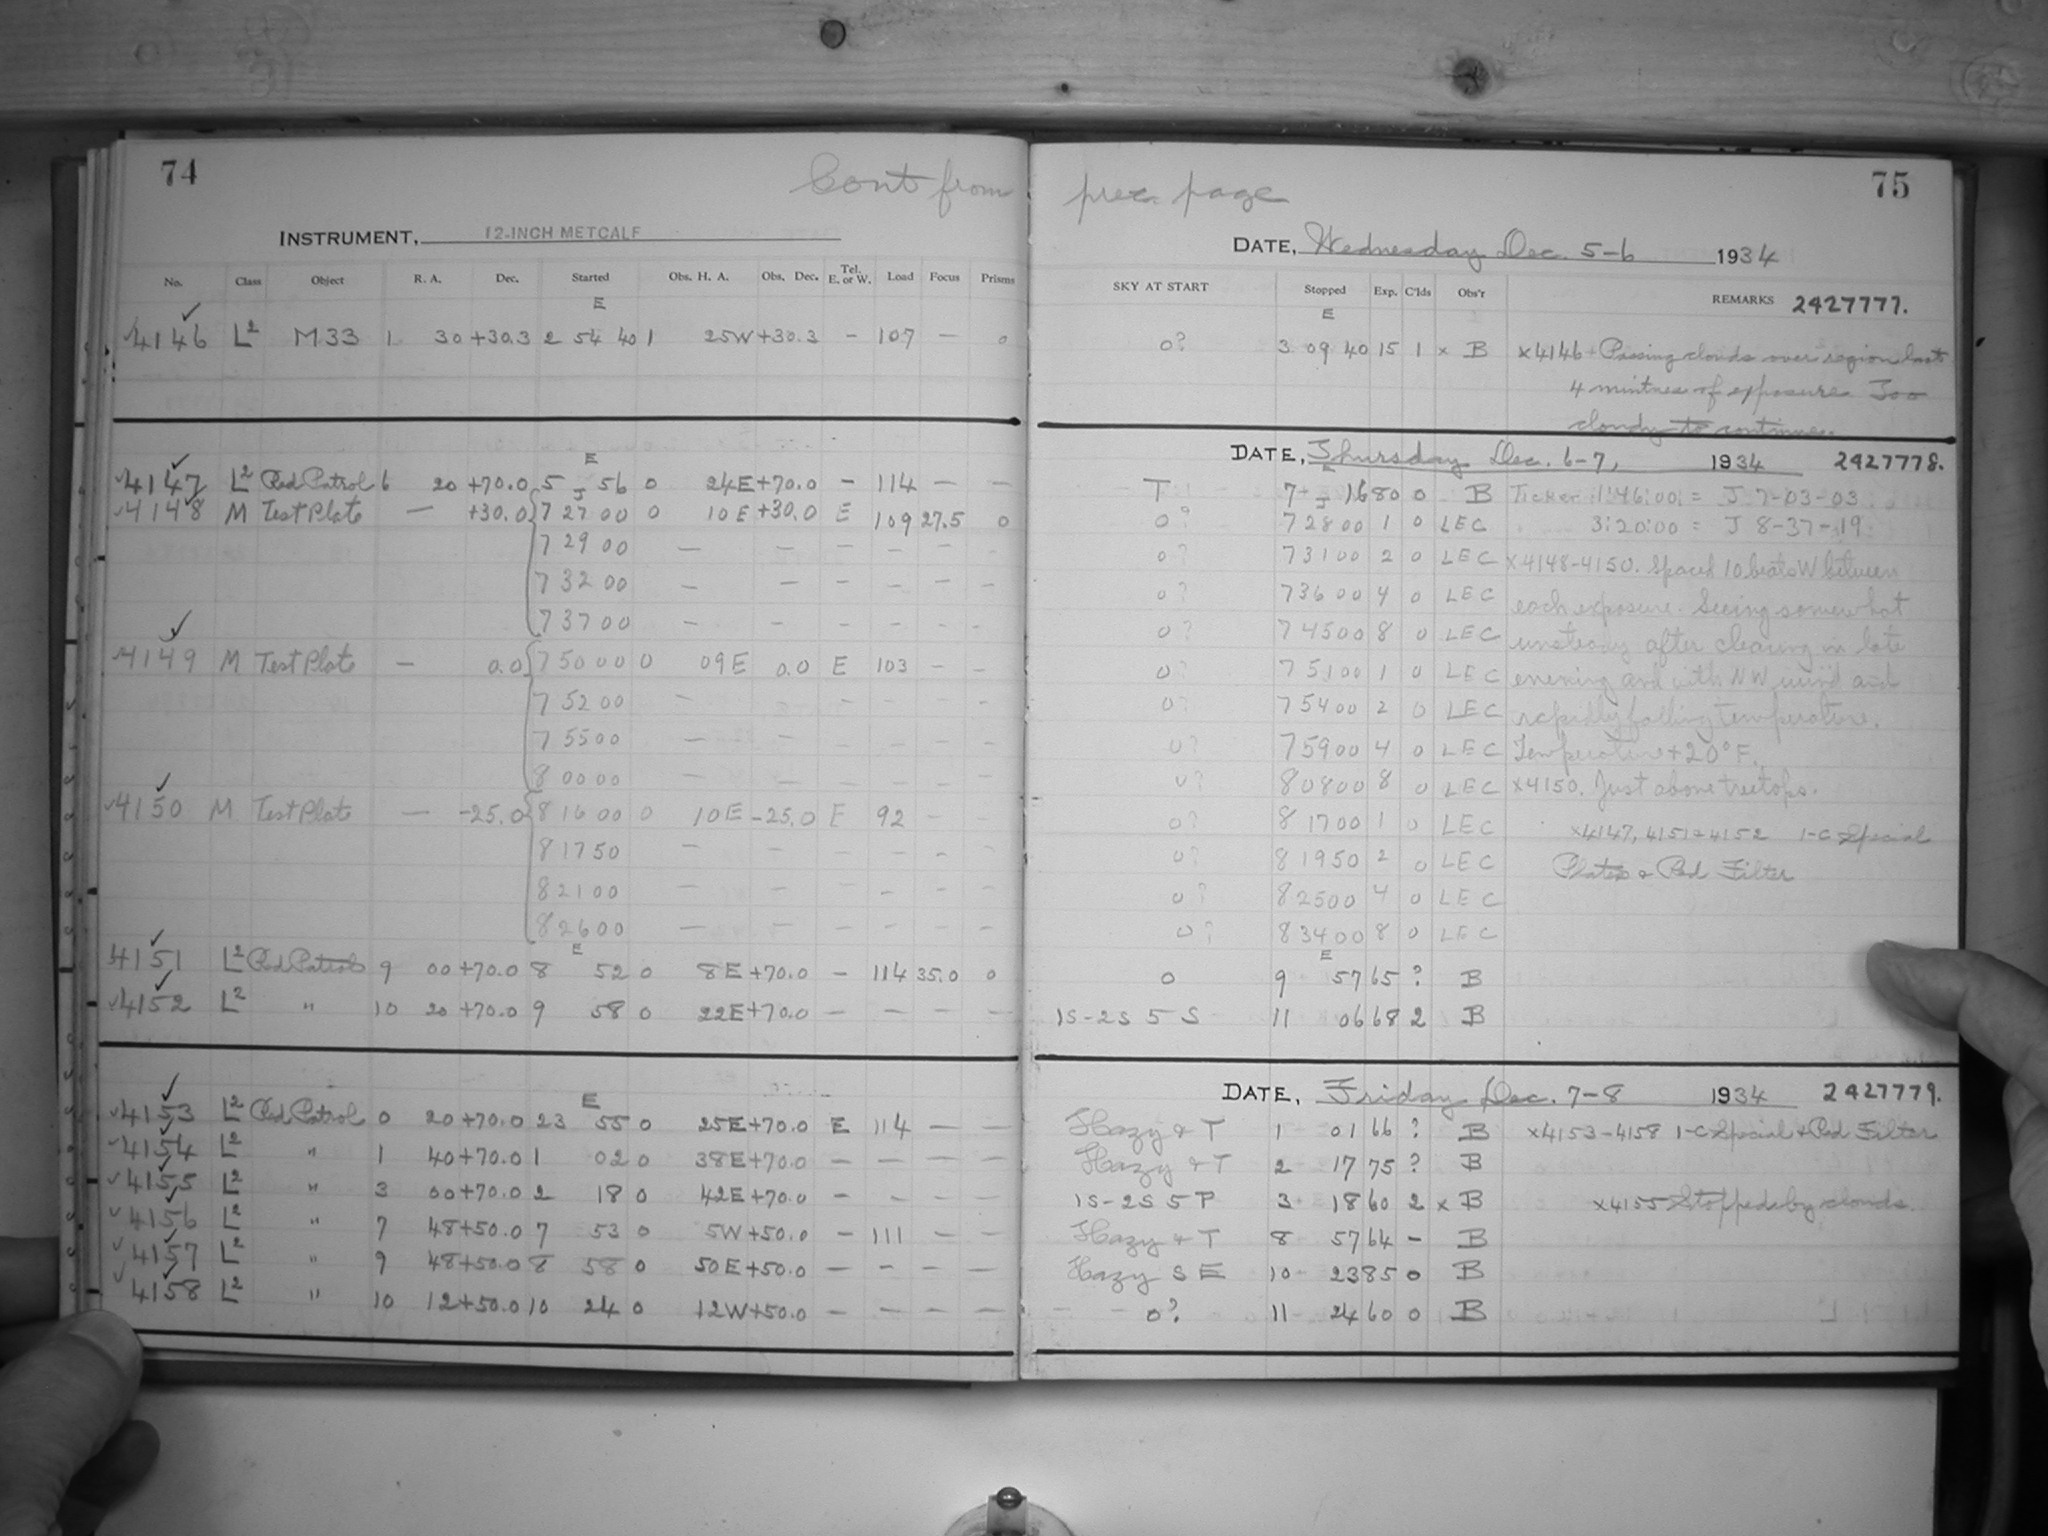 74
Cont from prec. page
75
INSTRUMENT, 12-INCH METCALF
DATE, Wednesday Dec. 5-6 1934
No. Class Object R. A. Dec. Started Obs. H. A. Obs. Dec. Tel. E. or W. Load Focus Prisms SKY AT START Stopped Exp. C'lds Obs'r REMARKS 2427777.
E E
✓4146 L² M33 1 30 +30.3 2 54 40 1 25W +30.3 - 107 — 0 0? 3 09 40 15 1 × B ×4146 Passing clouds over region last
4 mintues of exposure. Too
cloudy to continue.
DATE, Thursday Dec. 6-7, 1934 2427778.
E E
✓4147 L² Red Patrol 6 20 +70.0 5 56 0 24E +70.0 - 114 — — T 7 16 80 0 B Ticker 1:46:00 = J 7-03-03
J J
✓4148 M Test Plate — +30.0 7 27 00 0 10E +30.0 E 109 27.5 0 0? 7 28 00 1 0 LEC 3:20:00 = J 8-37-19
7 29 00 — — — — — — 0? 7 31 00 2 0 LEC ×4148-4150. Spaced 10 beats W between
7 32 00 — — — — — — 0? 7 36 00 4 0 LEC each exposure. Seeing somewhat
7 37 00 — — — — — — 0? 7 45 00 8 0 LEC unsteady after clearing in late
✓4149 M Test Plate — 0.0 7 50 00 0 09E 0.0 E 103 - - 0? 7 51 00 1 0 LEC evening and with NW wind and
7 52 00 — — — — — — 0? 7 54 00 2 0 LEC rapidly falling temperature.
7 55 00 — — — — — — 0? 7 59 00 4 0 LEC Temperature +20°F.
8 00 00 — — — — — — 0? 8 08 00 8 0 LEC ×4150. Just above treetops.
✓4150 M Test Plate — -25.0 8 16 00 0 10E -25.0 E 92 - - 0? 8 17 00 1 0 LEC ×4147, 4151 & 4152 1-C Special
8 17 50 — — — — — — 0? 8 19 50 2 0 LEC Plates & Red Filter
8 21 00 — — — — — — 0? 8 25 00 4 0 LEC
8 26 00 — — — — — — 0? 8 34 00 8 0 LEC
E E
4151 L² Red Patrol 9 00 +70.0 8 52 0 8E +70.0 - 114 35.0 0 0 9 57 65 ? B
✓4152 L² " 10 20 +70.0 9 58 0 22E +70.0 — — — — 1S-2S 5 S 11 06 68 2 B
DATE, Friday Dec. 7-8 1934 2427779.
E
✓4153 L² Red Patrol 0 20 +70.0 23 55 0 25E +70.0 E 114 — — Hazy & T 1 01 66 ? B ×4153-4158 1-C Special & Red Filter
✓4154 L² " 1 40 +70.0 1 02 0 38E +70.0 — — — — Hazy & T 2 17 75 ? B
✓4155 L² " 3 00 +70.0 2 18 0 42E +70.0 - — — — 1S-2S 5 P 3 18 60 2 × B ×4155 Stopped by clouds.
✓4156 L² " 7 48 +50.0 7 53 0 5W +50.0 - 111 — — Hazy & T 8 57 64 - B
✓4157 L² " 9 48 +50.0 8 58 0 50E +50.0 — — — — Hazy S E 10 23 85 0 B
✓4158 L² " 10 12 +50.0 10 24 0 12W +50.0 — — — — 0? 11 24 60 0 B